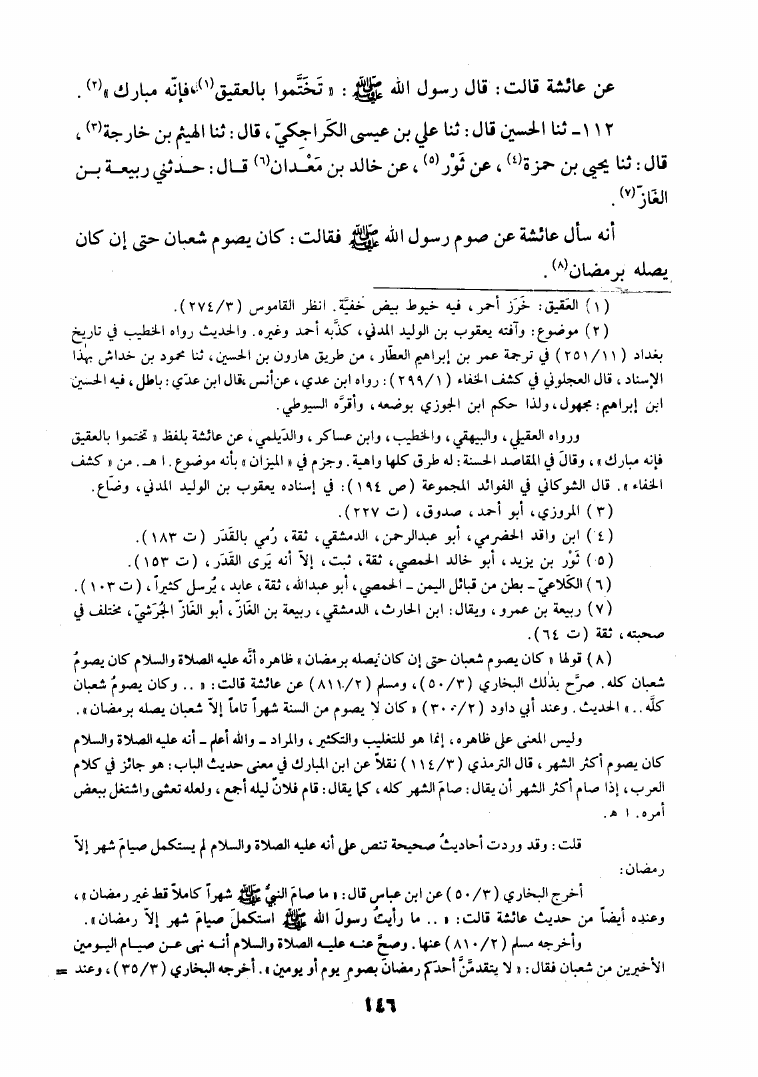 عن عائشة قالت: قال رسول الله ﷺ: «تَخَتَّموا بالعقيق(١)، فإنّه مبارك»(٢).
١١٢- ثنا الحسين قال: ثنا علي بن عيسى الكَراجكيّ، قال: ثنا الهيثم بن خارجة(٣)،
قال: ثنا يحيى بن حمزة(٤)، عن ثَوْر(٥)، عن خالد بن مَعْدان(٦) قال: حدثني ربيعة بن
الغَازّ(٧).
أنه سأل عائشة عن صوم رسول الله ﷺ فقالت: كان يصوم شعبان حتى إن كان
يصله برمضان(٨).
(١) العَقيق: خَرَز أحمر، فيه خيوط بيض خفيَّة. انظر القاموس (٢٧٤/٣).
(٢) موضوع: وآفته يعقوب بن الوليد المدني، كذّبه أحمد وغيره. والحديث رواه الخطيب في تاريخ
بغداد (٢٥١/١١) في ترجمة عمر بن إبراهيم العطّار، من طريق هارون بن الحسين، ثنا محمود بن خداش بهذا
الإسناد، قال العجلوني في كشف الخفاء (٢٩٩/١): رواه ابن عدي، عن أنس، قال ابن عدّي: باطل، فيه الحسين
ابن إبراهيم: مجهول، ولذا حكم ابن الجوزي بوضعه، وأقرَّه السيوطي.
ورواه العقيلي، والبيهقي، والخطيب، وابن عساكر، والدّيلمي، عن عائشة بلفظ «تختموا بالعقيق
فإنه مبارك»، وقال في المقاصد الحسنة: له طرق كلها واهية. وجزم في «الميزان» بأنه موضوع. ا هـ. من «كشف
الخفاء». قال الشوكاني في الفوائد المجموعة (ص ١٩٤): في إسناده يعقوب بن الوليد المدني، وضّاع.
(٣) المروزي، أبو أحمد، صدوق، (ت ٢٢٧).
(٤) ابن واقد الحضرمي، أبو عبدالرحمن، الدمشقي، ثقة، رُمي بالقَدَر (ت ١٨٣).
(٥) ثَوْر بن يزيد، أبو خالد الحمصي، ثقة، ثبت، إلاّ أنه يَرى القَدَر، (ت ١٥٣).
(٦) الكَلاعيّ - بطن من قبائل اليمن - الحمصي، أبو عبدالله، ثقة، عابد، يُرسل كثيراً، (ت ١٠٣).
(٧) ربيعة بن عمرو، ويقال: ابن الحارث، الدمشقي، ربيعة بن الغَازّ، أبو الغَازّ الجُرَشيّ، مختلف في
صحبته، ثقة (ت ٦٤).
(٨) قولها «كان يصوم شعبان حتى إن كان يصله برمضان» ظاهره أنَّه عليه الصلاة والسلام كان يصومُ
شعبان كله. صرَّح بذلك البخاري (٥٠/٣)، ومسلم (٨١١/٢) عن عائشة قالت: «.. وكان يصومُ شعبان
كلَّه..» الحديث. وعند أبي داود (٣٠٠/٢) «كان لا يصوم من السنة شهراً تاماً إلاّ شعبان يصله برمضان».
وليس المعنى على ظاهره، إنما هو للتغليب والتكثير، والمراد - والله أعلم - أنه عليه الصلاة والسلام
كان يصوم أكثر الشهر، قال الترمذي (١١٤/٣) نقلاً عن ابن المبارك في معنى حديث الباب: هو جائز في كلام
العرب، إذا صام أكثر الشهر أن يقال: صامَ الشهر كله، كما يقال: قام فلانٌ ليله أجمع، ولعله تعشى واشتغل ببعض
أمره. ا هـ.
قلت: وقد وردت أحاديثُ صحيحة تنص على أنه عليه الصلاة والسلام لم يستكمل صيامَ شهر إلاّ
رمضان:
أخرج البخاري (٥٠/٣) عن ابن عباس قال: «ما صامَ النبيُّ ﷺ شهراً كاملاً قط غير رمضان»،
وعنده أيضاً من حديث عائشة قالت: «.. ما رأيتُ رسولَ الله ﷺ استكملَ صيامَ شهر إلاّ رمضان».
وأخرجه مسلم (٨١٠/٢) عنها. وصحَّ عنه عليه الصلاة والسلام أنه نهى عن صيام اليومين
الأخيرين من شعبان فقال: «لا يتقدمَّنَّ أحدكم رمضانَ بصوم يوم أو يومين». أخرجه البخاري (٣٥/٣)، وعند =
١٤٦